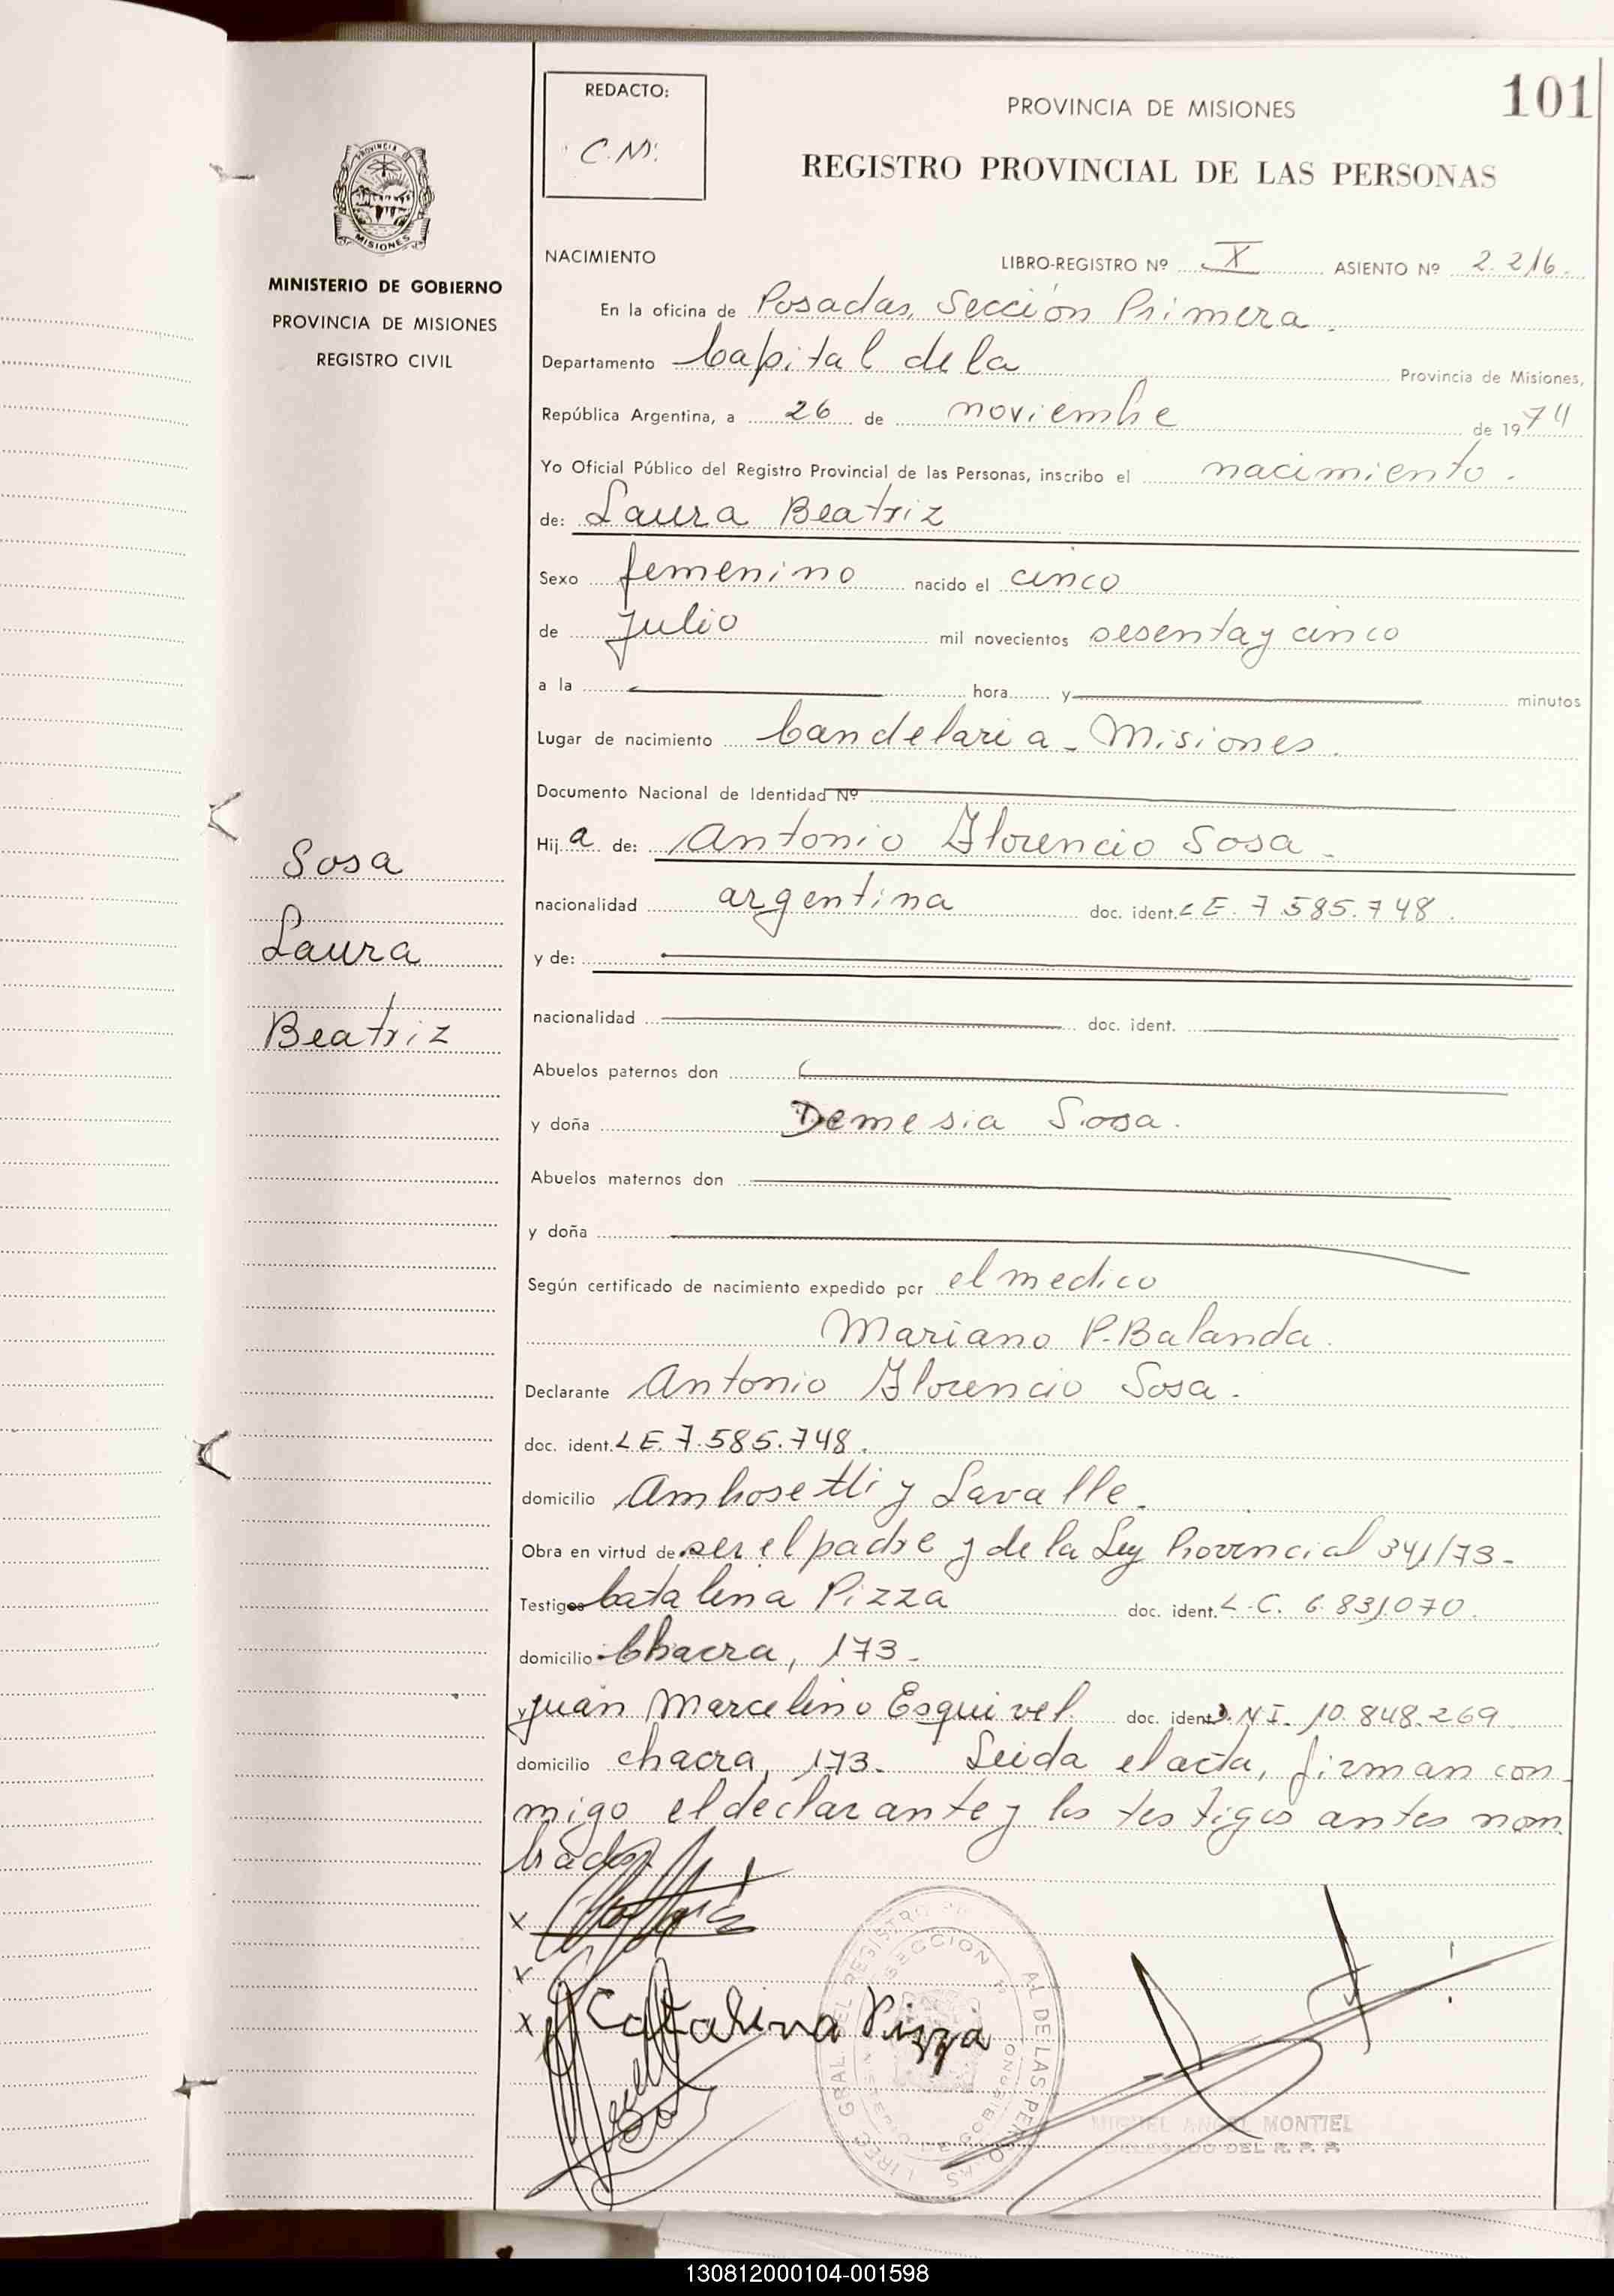 101
REDACTO:
C.M.
PROVINCIA DE MISIONES
REGISTRO PROVINCIAL DE LAS PERSONAS
PROVINCIA DE
MISIONES
MINISTERIO DE GOBIERNO
PROVINCIA DE MISIONES
REGISTRO CIVIL
Sosa
Laura
Beatriz
NACIMIENTO LIBRO-REGISTRO Nº X ASIENTO Nº 2.216.
En la oficina de Posadas, Sección Primera.
Departamento Capital de la Provincia de Misiones,
República Argentina, a 26 de noviembre de 1974
Yo Oficial Público del Registro Provincial de las Personas, inscribo el nacimiento.
de: Laura Beatriz
Sexo femenino nacido el cinco
de Julio mil novecientos sesenta y cinco
a la hora y minutos
Lugar de nacimiento Candelaria - Misiones.
Documento Nacional de Identidad Nº
Hija de: Antonio Florencio Sosa.
nacionalidad argentina doc. ident. L E. 7.585.748.
y de:
nacionalidad doc. ident.
Abuelos paternos don
y doña Demesia Sosa.
Abuelos maternos don
y doña
Según certificado de nacimiento expedido por el medico
Mariano P. Balanda.
Declarante Antonio Florencio Sosa.
doc. ident. L E. 7.585.748.
domicilio Ambosetti y Lavalle.
Obra en virtud de ser el padre y de la Ley Provincial 341/73-
Testigos Catalina Pizza doc. ident. L.C. 6.831.070.
domicilio Chacra, 173-
y Juan Marcelino Esquivel. doc. ident. D.N I. 10.848.269
domicilio chacra, 173. Leida el acta, firman con
migo el declarante y los testigos antes nom
brados.
x
x
x Catalina Pizza
MIGUEL ANGEL MONTIEL
DELEGADO DEL R. P. P.
130812000104-001598